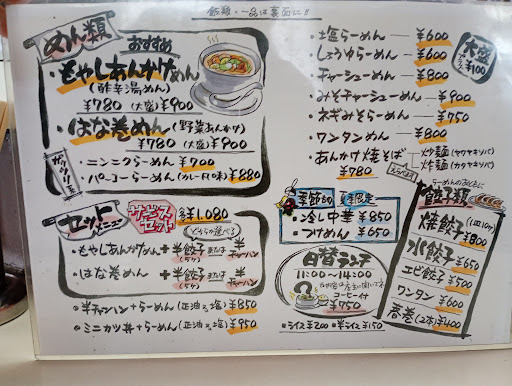 飯類・一品は裏面に!!
めん類
おすすめ
・もやしあんかけめん
(酢辛湯めん)
¥780 (大盛)¥900
・はな巻めん (野菜あんかけ)
¥780 (大盛)¥900
ガッツリ
・ニンニクらーめん ¥700
・パーコーらーめん(カレー味) ¥880
・塩らーめん ― ¥600
・しょうゆらーめん ― ¥600
・チャーシューめん ― ¥800
・みそチャーシューめん ― ¥900
・ネギみそらーめん ― ¥750
・ワンタンめん ― ¥800
・あんかけ焼そば
¥780
炒麺 (ヤワヤキソバ)
炸麺 (カタヤキソバ)
大盛
プラス¥100
セットメニュー
サービスセット
各¥1,080
どちらか選べる
・もやしあんかけめん + 半餃子 または 半チャーハン
・はな巻めん + 半餃子 または 半チャーハン
・半チャーハン+らーめん (正油or塩) ¥850
・ミニカツ丼+らーめん (正油or塩) ¥950
季節もの
夏限定
・冷し中華 ¥850
・つけめん ¥650
日替ランチ
11:00~14:00
コーヒー付
¥750
■ライス ¥200 ■半ライス ¥150
らーめんのおともに
餃子類
焼餃子 (1皿10ケ) ¥800
水餃子 ¥650
エビ餃子 ¥500
ワンタン ¥600
春巻 (2本) ¥400